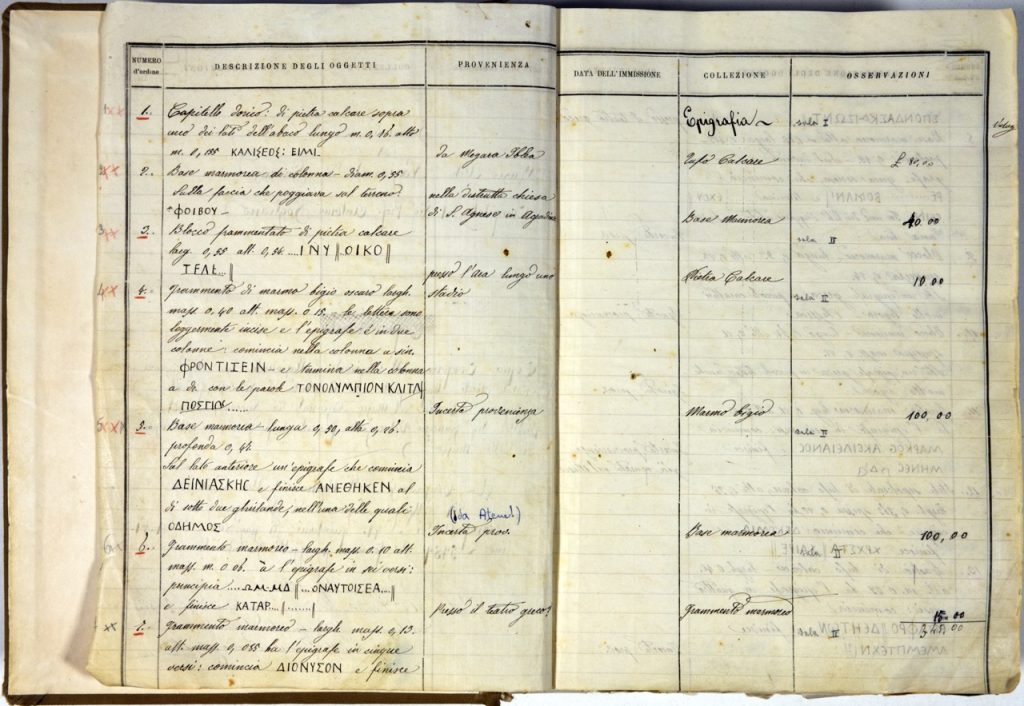 NUMERO
d'ordine
DESCRIZIONE DEGLI OGGETTI
PROVENIENZA
DATA DELL'IMMISSIONE
COLLEZIONE
OSSERVAZIONI
1. Capitello dorico: di pietra calcare sopra
uno dei lati dell'abaco lungo m. 0,26 alt.
m. 0,155 ΚΑΛΙΣΕΟΣ: ΕΙΜΙ
da Megara Iblea
Epigrafia sala I
Tufo Calcare
2. Base marmorea di colonna - diam. 0,35
sulla fascia che poggiava sul terreno:
ΦΟΙΒΟΥ
nella distrutta chiesa
di S. Agnese in
Base Marmorea 40.00
sala II
3. Blocco frammentato di pietra calcare
larg. 0,55 alt. 0,54 .... ΙΝΥ || ΟΙΚΟ ||
ΤΕΛΕ.... ||
presso l'Ara lungo uno
stadio
Pietra Calcare 10.00
sala II
4. Frammento di marmo bigio oscuro largh.
mass. 0,40 alt. mass. 0.15. Le lettere sono
leggermente incise e l'epigrafe è in due
colonne: comincia nella colonna a sin.
ΦΡΟΝΤΙΣΕΙΝ - e termina nella colonna
a d. con le parole ΤΟΝΟΛΥΜΠΙΟΝ ΚΛΙΤΑ
ΠΟΣΓΙΟΥ......
Incerta provenienza
Marmo bigio 100,00
sala II
5. Base marmorea - lunga 0,30, alta 0,26.
profonda 0,41.
Sul lato anteriore un'epigrafe che comincia
ΔΕΙΝΙΑΣΚΗΣ e finisce ΑΝΕΘΗΚΕΝ al
di sotto due ghirlande, nell'una delle quali,
ΟΔΗΜΟΣ
Incerta prov.
Base marmorea 100,00
sala II
6. Frammento marmoreo - largh. mass. 0.10 alt.
mass. m. 0 06. à l'epigrafe in sei versi:
principia .... ΩΜ-ΜΔ ||... ΟΝΑΥΤΟΙΣΕΑ...
e finisce ΚΑΤΑΡ...||.......||
Presso il teatro greco
Frammento marmoreo 15.00
sala II 345,00
7. Frammento marmoreo - largh. mass. 0,13.
alt. mass. 0,055 ha l'epigrafe in cinque
versi: comincia ΔΙΟΝΥΣΟΝ e finisce